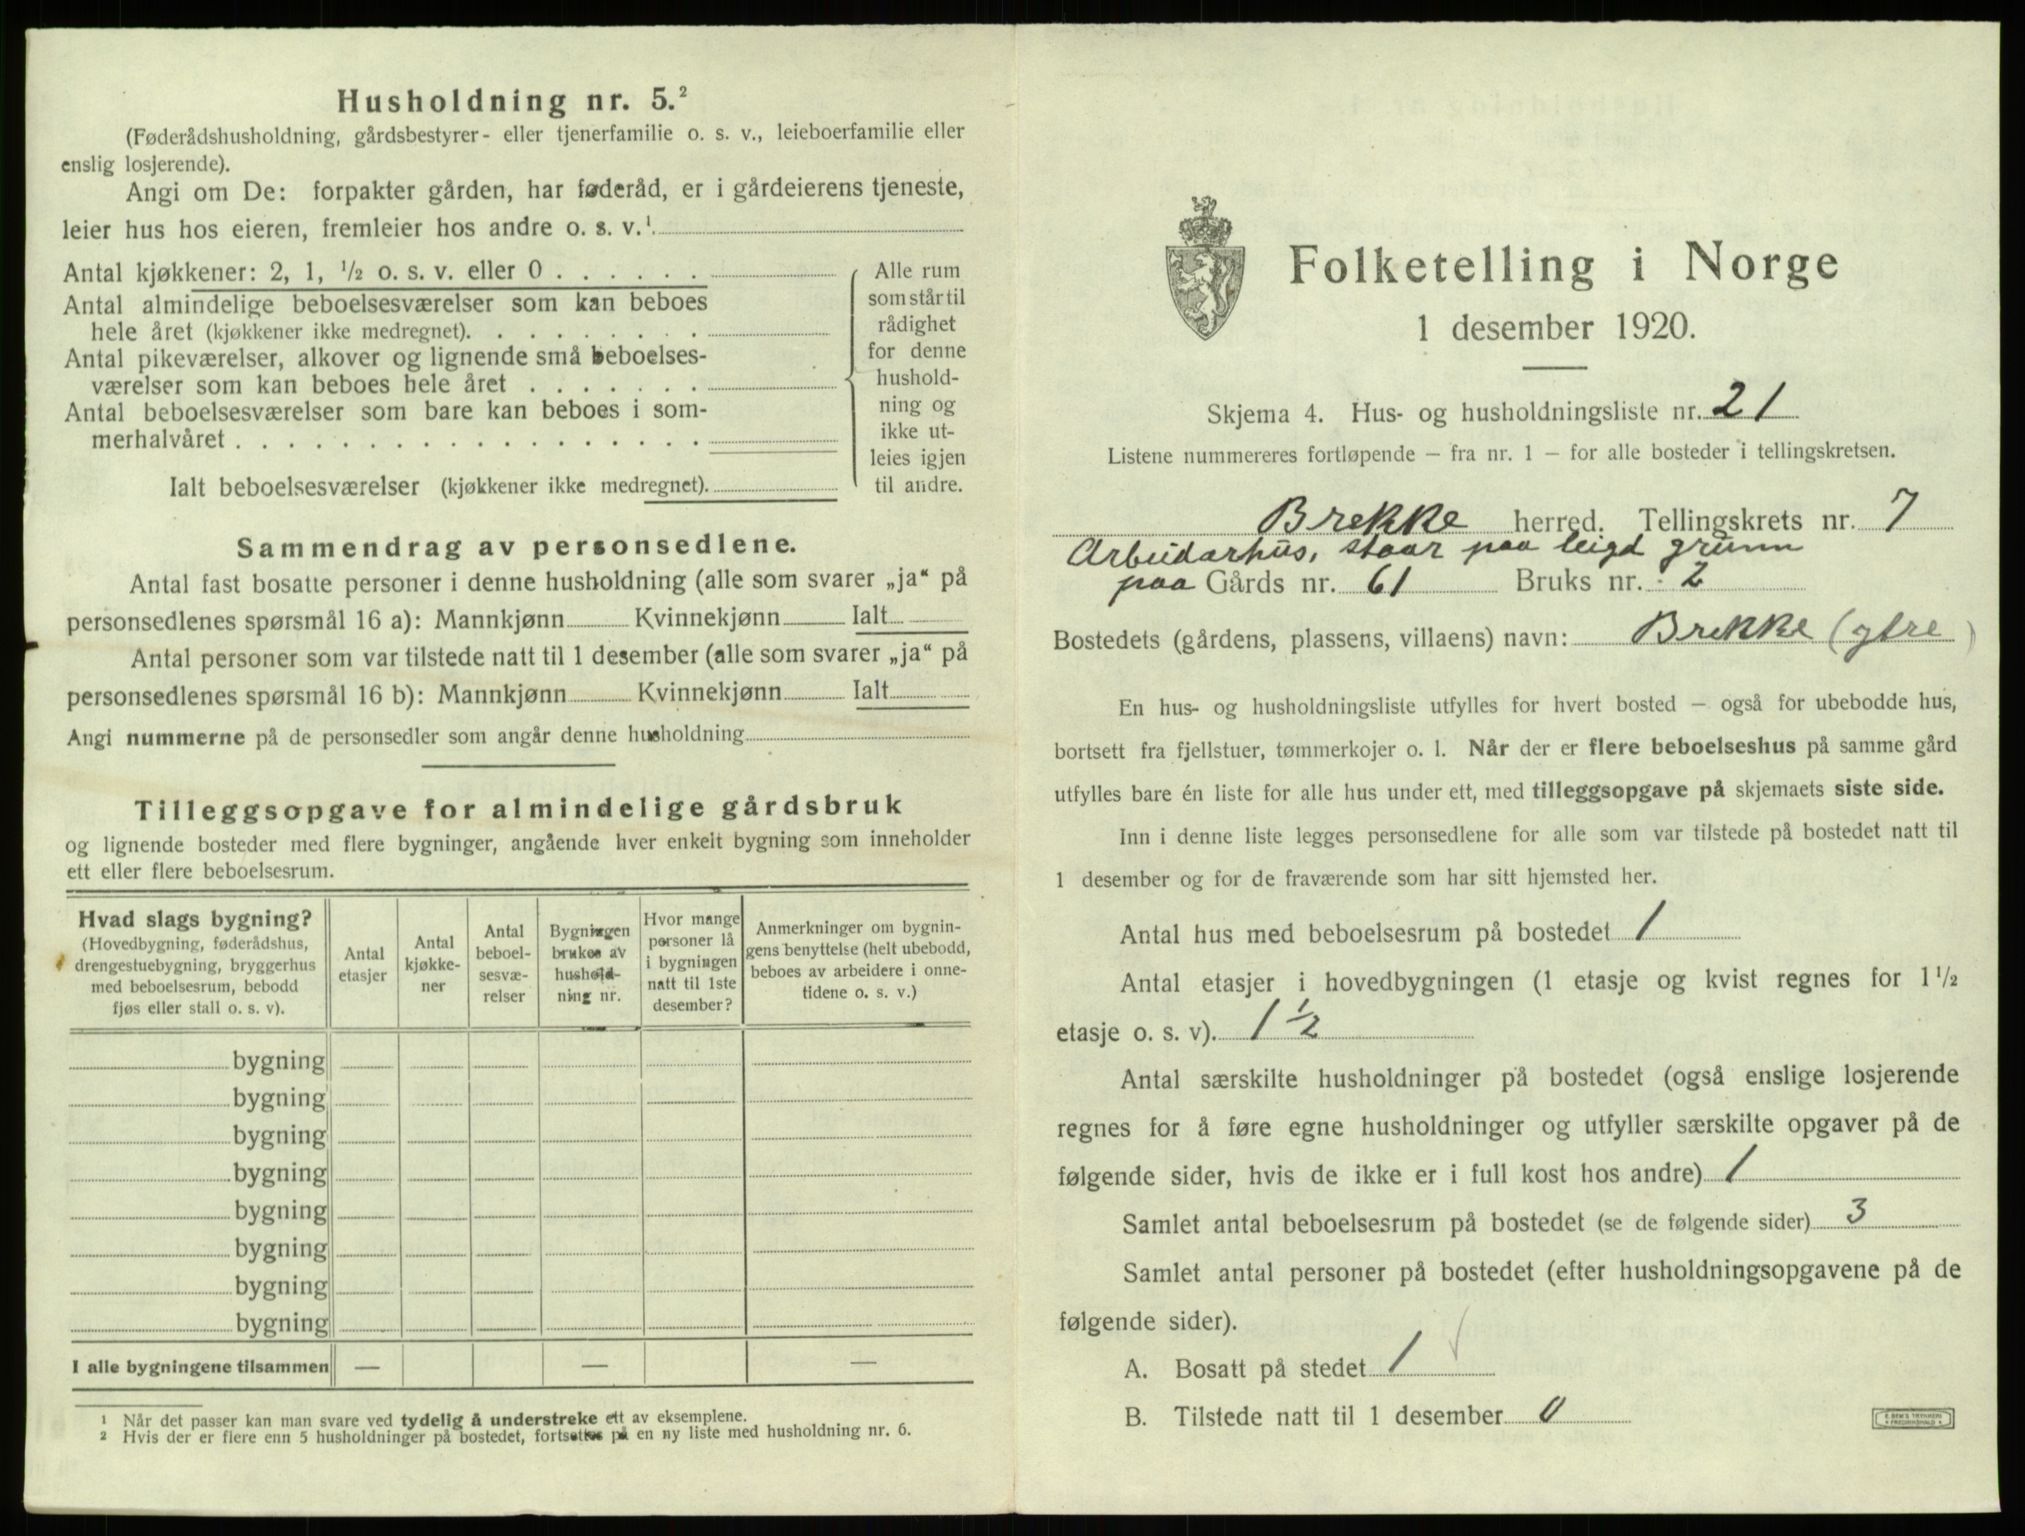 Husholdning nr. 5.²
(Føderådshusholdning, gårdsbestyrer- eller tjenerfamilie o. s. v., leieboerfamilie eller
enslig losjerende).
Angi om De: forpakter gården, har føderåd, er i gårdeierens tjeneste,
leier hus hos eieren, fremleier hos andre o. s. v.¹
Antal kjøkkener: 2, 1, ½ o. s. v. eller 0 . . . . . .
Antal almindelige beboelsesværelser som kan beboes
hele året (kjøkkener ikke medregnet). . . . . . . .
Antal pikeværelser, alkover og lignende små beboelses-
værelser som kan beboes hele året . . . . . . .
Antal beboelsesværelser som bare kan beboes i som-
merhalvåret . . . . . . . . . . . . . . . . . .
Ialt beboelsesværelser (kjøkkener ikke medregnet).
Alle rum
som står til
rådighet
for denne
hushold-
ning og
ikke ut-
leies igjen
til andre.
Sammendrag av personsedlene.
Antal fast bosatte personer i denne husholdning (alle som svarer „ja“ på
personsedlenes spørsmål 16 a): Mannkjønn Kvinnekjønn Ialt
Antal personer som var tilstede natt til 1 desember (alle som svarer „ja“ på
personsedlenes spørsmål 16 b): Mannkjønn Kvinnekjønn Ialt
Angi nummerne på de personsedler som angår denne husholdning
Tilleggsopgave for almindelige gårdsbruk
og lignende bosteder med flere bygninger, angående hver enkelt bygning som inneholder
ett eller flere beboelsesrum.
Hvad slags bygning?
(Hovedbygning, føderådshus,
drengestuebygning, bryggerhus
med beboelsesrum, bebodd
fjøs eller stall o. s. v).
Antal
etasjer
Antal
kjøkke-
ner
Antal
beboel-
sesvæ-
relser
Bygningen
brukes av
hushold-
ning nr.
Hvor mange
personer lå
i bygningen
natt til 1ste
desember?
Anmerkninger om bygnin-
gens benyttelse (helt ubebodd,
beboes av arbeidere i onne-
tidene o. s. v.)
bygning
bygning
bygning
bygning
bygning
bygning
bygning
bygning
I alle bygningene tilsammen — — —
¹ Når det passer kan man svare ved tydelig å understreke ett av eksemplene.
² Hvis der er flere enn 5 husholdninger på bostedet, fortsettes på en ny liste med husholdning nr. 6.
Folketelling i Norge
1 desember 1920.
Skjema 4. Hus- og husholdningsliste nr. 21
Listene nummereres fortløpende — fra nr. 1 — for alle bosteder i tellingskretsen.
Brekke herred. Tellingskrets nr. 7
Arbeidarhus, staar paa leigd grunn
paa Gårds nr. 61 Bruks nr. 2
Bostedets (gårdens, plassens, villaens) navn: Brekke (ytre)
En hus- og husholdningsliste utfylles for hvert bosted — også for ubebodde hus,
bortsett fra fjellstuer, tømmerkojer o. l. Når der er flere beboelseshus på samme gård
utfylles bare én liste for alle hus under ett, med tilleggsopgave på skjemaets siste side.
Inn i denne liste legges personsedlene for alle som var tilstede på bostedet natt til
1 desember og for de fraværende som har sitt hjemsted her.
Antal hus med beboelsesrum på bostedet 1
Antal etasjer i hovedbygningen (1 etasje og kvist regnes for 1½
etasje o. s. v). 1½
Antal særskilte husholdninger på bostedet (også enslige losjerende
regnes for å føre egne husholdninger og utfyller særskilte opgaver på de
følgende sider, hvis de ikke er i full kost hos andre) 1
Samlet antal beboelsesrum på bostedet (se de følgende sider) 3
Samlet antal personer på bostedet (efter husholdningsopgavene på de
følgende sider).
A. Bosatt på stedet 1 √
B. Tilstede natt til 1 desember 0